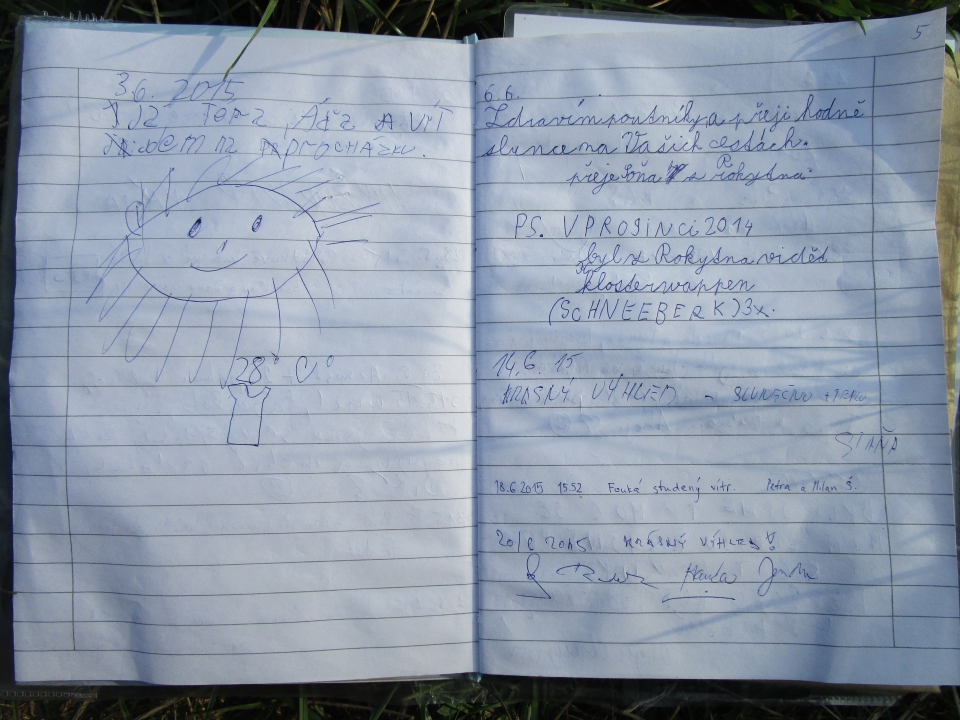 3.6. 2015
A VÍT
NA PROCHÁZKU.
28° C°
5
6.6.
Zdravím poutníky a přeji hodně
slunce na Vašich cestách.
přeje z Rokytna.
PS. V PROSINCI 2014
byl z Rokytna viděd
klosterwappen
(SCHNEEBERK) 3x.
14.6. 15
KRÁSNÝ VÝHLED - SLUNEČNO + TEPLO
STÁŇA
18.6.2015 15.52 Fouká studený vítr. Petra a Milan Š.
20/6 2015 KRÁSNÝ VÝHLED!
Hanka